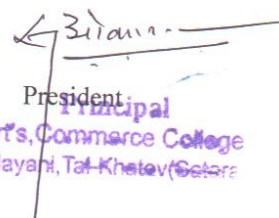 President
Principal
rt's, Commerce College
ayani, Tal-Khatav(Satara